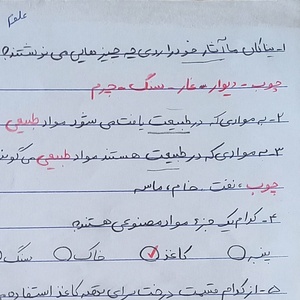 علوم
۱- نیاکان ما آثار خود را روی چه چیز هایی می نوشتند؟
چوب - دیوار - غار - سنگ - چرم
۲- به موادی که در طبیعت یافت می شود مواد طبیعی
۳- به موادی که در طبیعت هستند مواد طبیعی می گویند
چوب، نفت، خاک، ماسه
۴- کدام یک جزء مواد مصنوعی هستند؟
پنبه کاغذ خاک سنگ
۵- از کدام قسمت درخت برای تهیه کاغذ استفاده